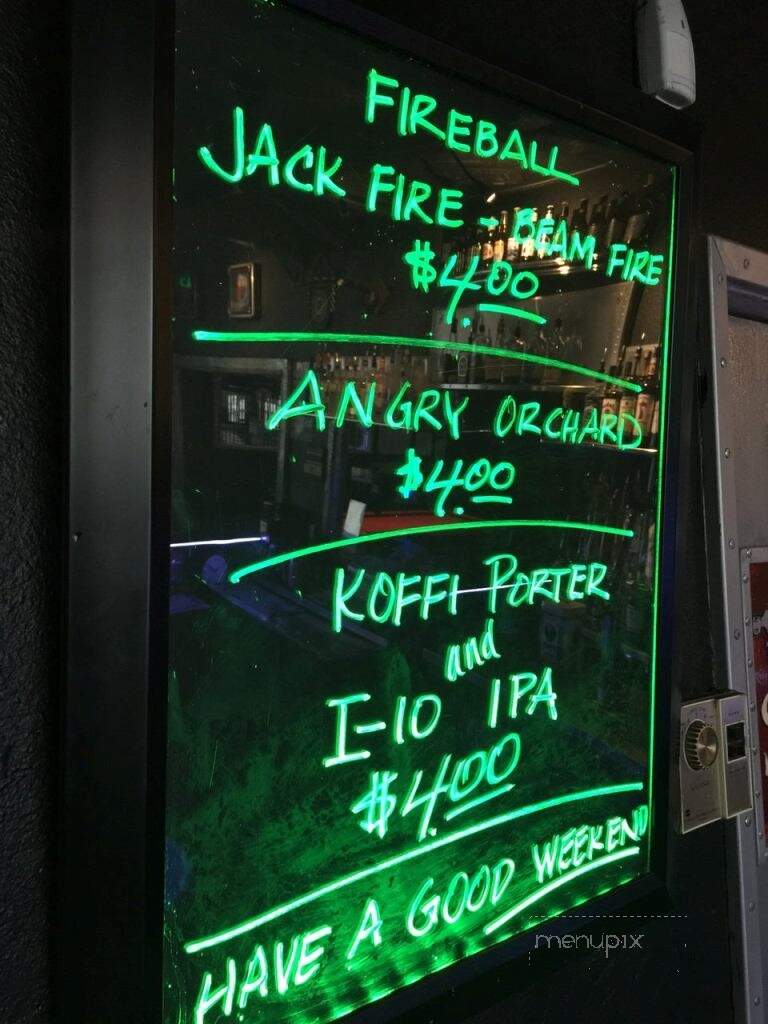 FIREBALL
JACK FIRE - BEAM FIRE
$4.00
ANGRY ORCHARD
$4.00
KOFFI PORTER
and
I-10 IPA
$4.00
HAVE A GOOD WEEKEND
menupix